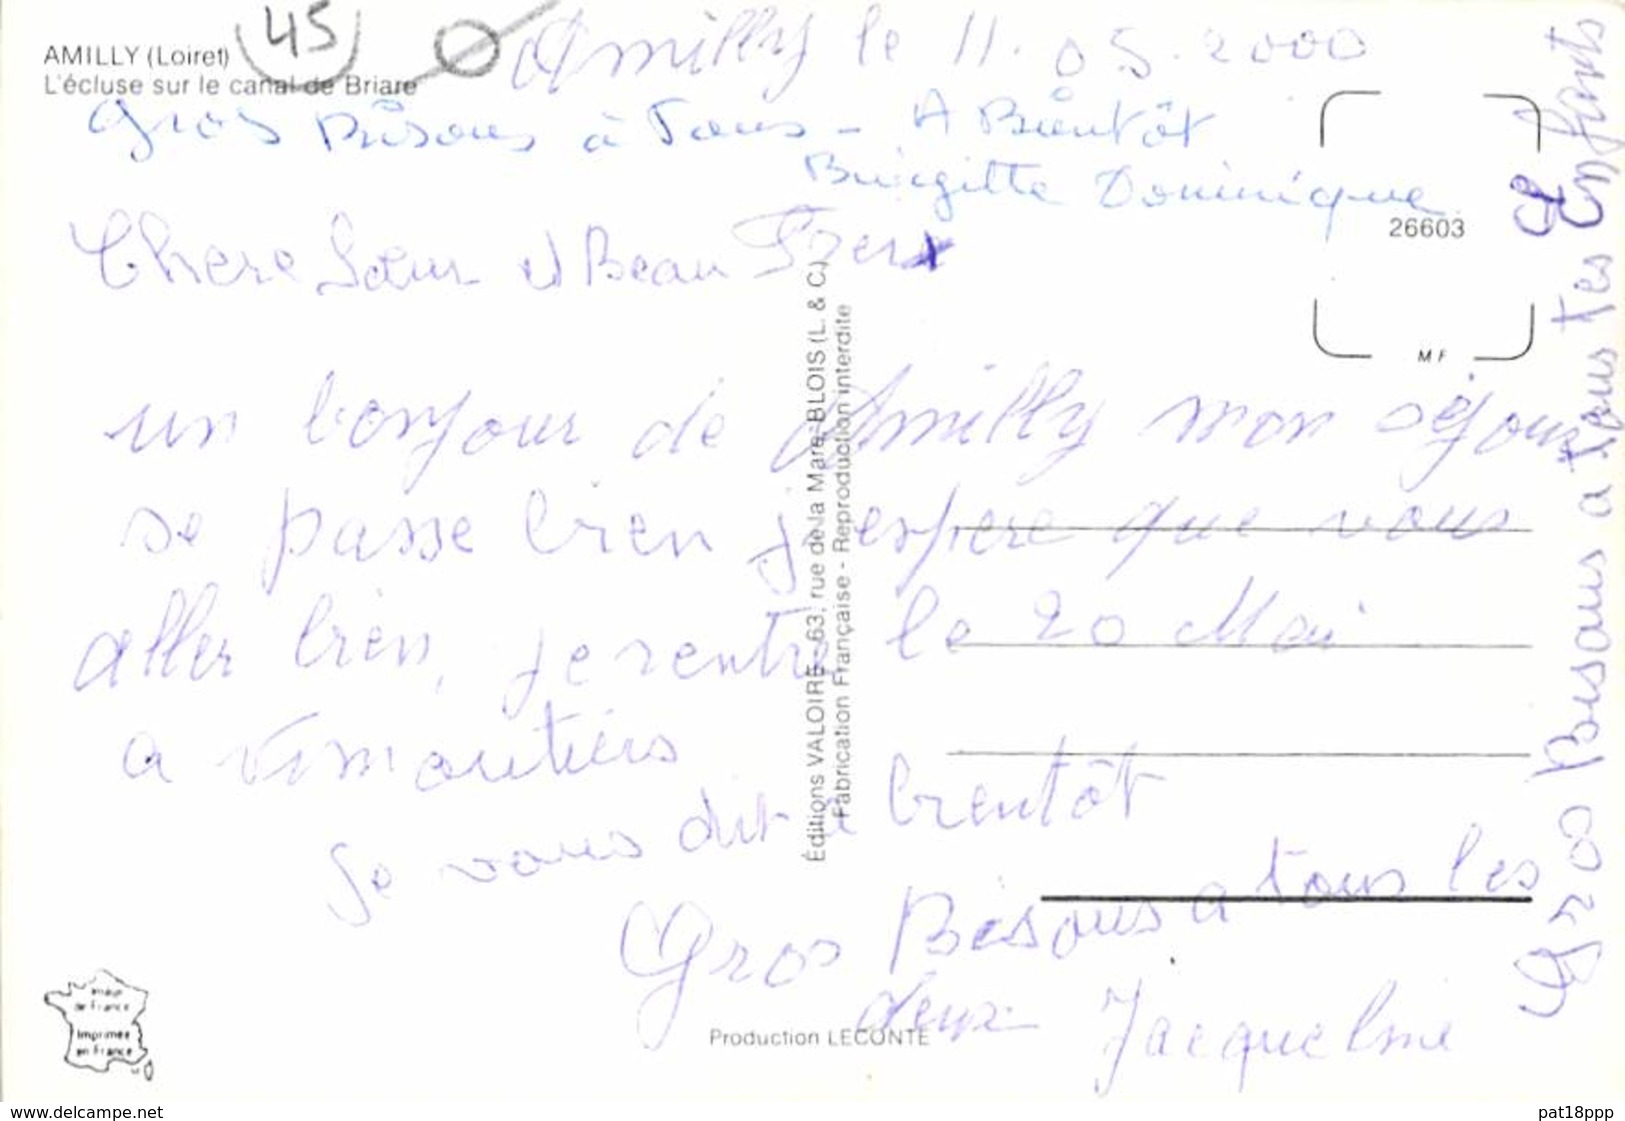 AMILLY (Loiret)
L'écluse sur le canal de Briare
45
Amilly le 11.05.2000
Gros Bisous à Tous - A Bientôt
Birigitte Dominique
26603
Chere Sœur et Beau Frere
un bonjour de Amilly mon séjour
se passe bien j'espere que vous
aller bien, je rentre le 20 Mai
a Vimoutiers
Je vous dit a bientôt
Gros Bisous a tous les
deux Jacqueline
Gros Bisous a tous tes Enfants
Éditions VALOIRE - 63, rue de la Mare, BLOIS (L. & C.)
Fabrication Française - Reproduction interdite
MF
image
de France
Imprimée
en France
Production LECONTE
www.delcampe.net
pat18ppp